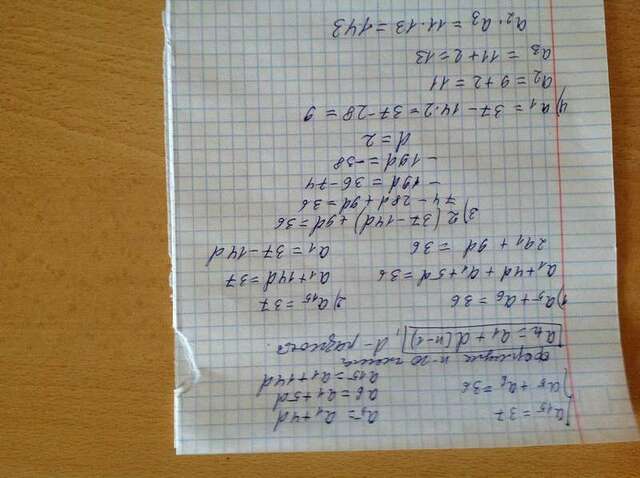 { a₁₅ = 37
a₅ + a₆ = 36
a₅ = a₁ + 4d
a₆ = a₁ + 5d
a₁₅ = a₁ + 14d
формула n-го члена
aₙ = a₁ + d(n-1), d - разность.
1) a₅ + a₆ = 36
a₁ + 4d + a₁ + 5d = 36
2a₁ + 9d = 36
2) a₁₅ = 37
a₁ + 14d = 37
a₁ = 37 - 14d
3) 2(37 - 14d) + 9d = 36
74 - 28d + 9d = 36
- 19d = 36 - 74
- 19d = -38
d = 2
4) a₁ = 37 - 14·2 = 37 - 28 = 9
a₂ = 9 + 2 = 11
a₃ = 11 + 2 = 13
a₂ · a₃ = 11 · 13 = 143